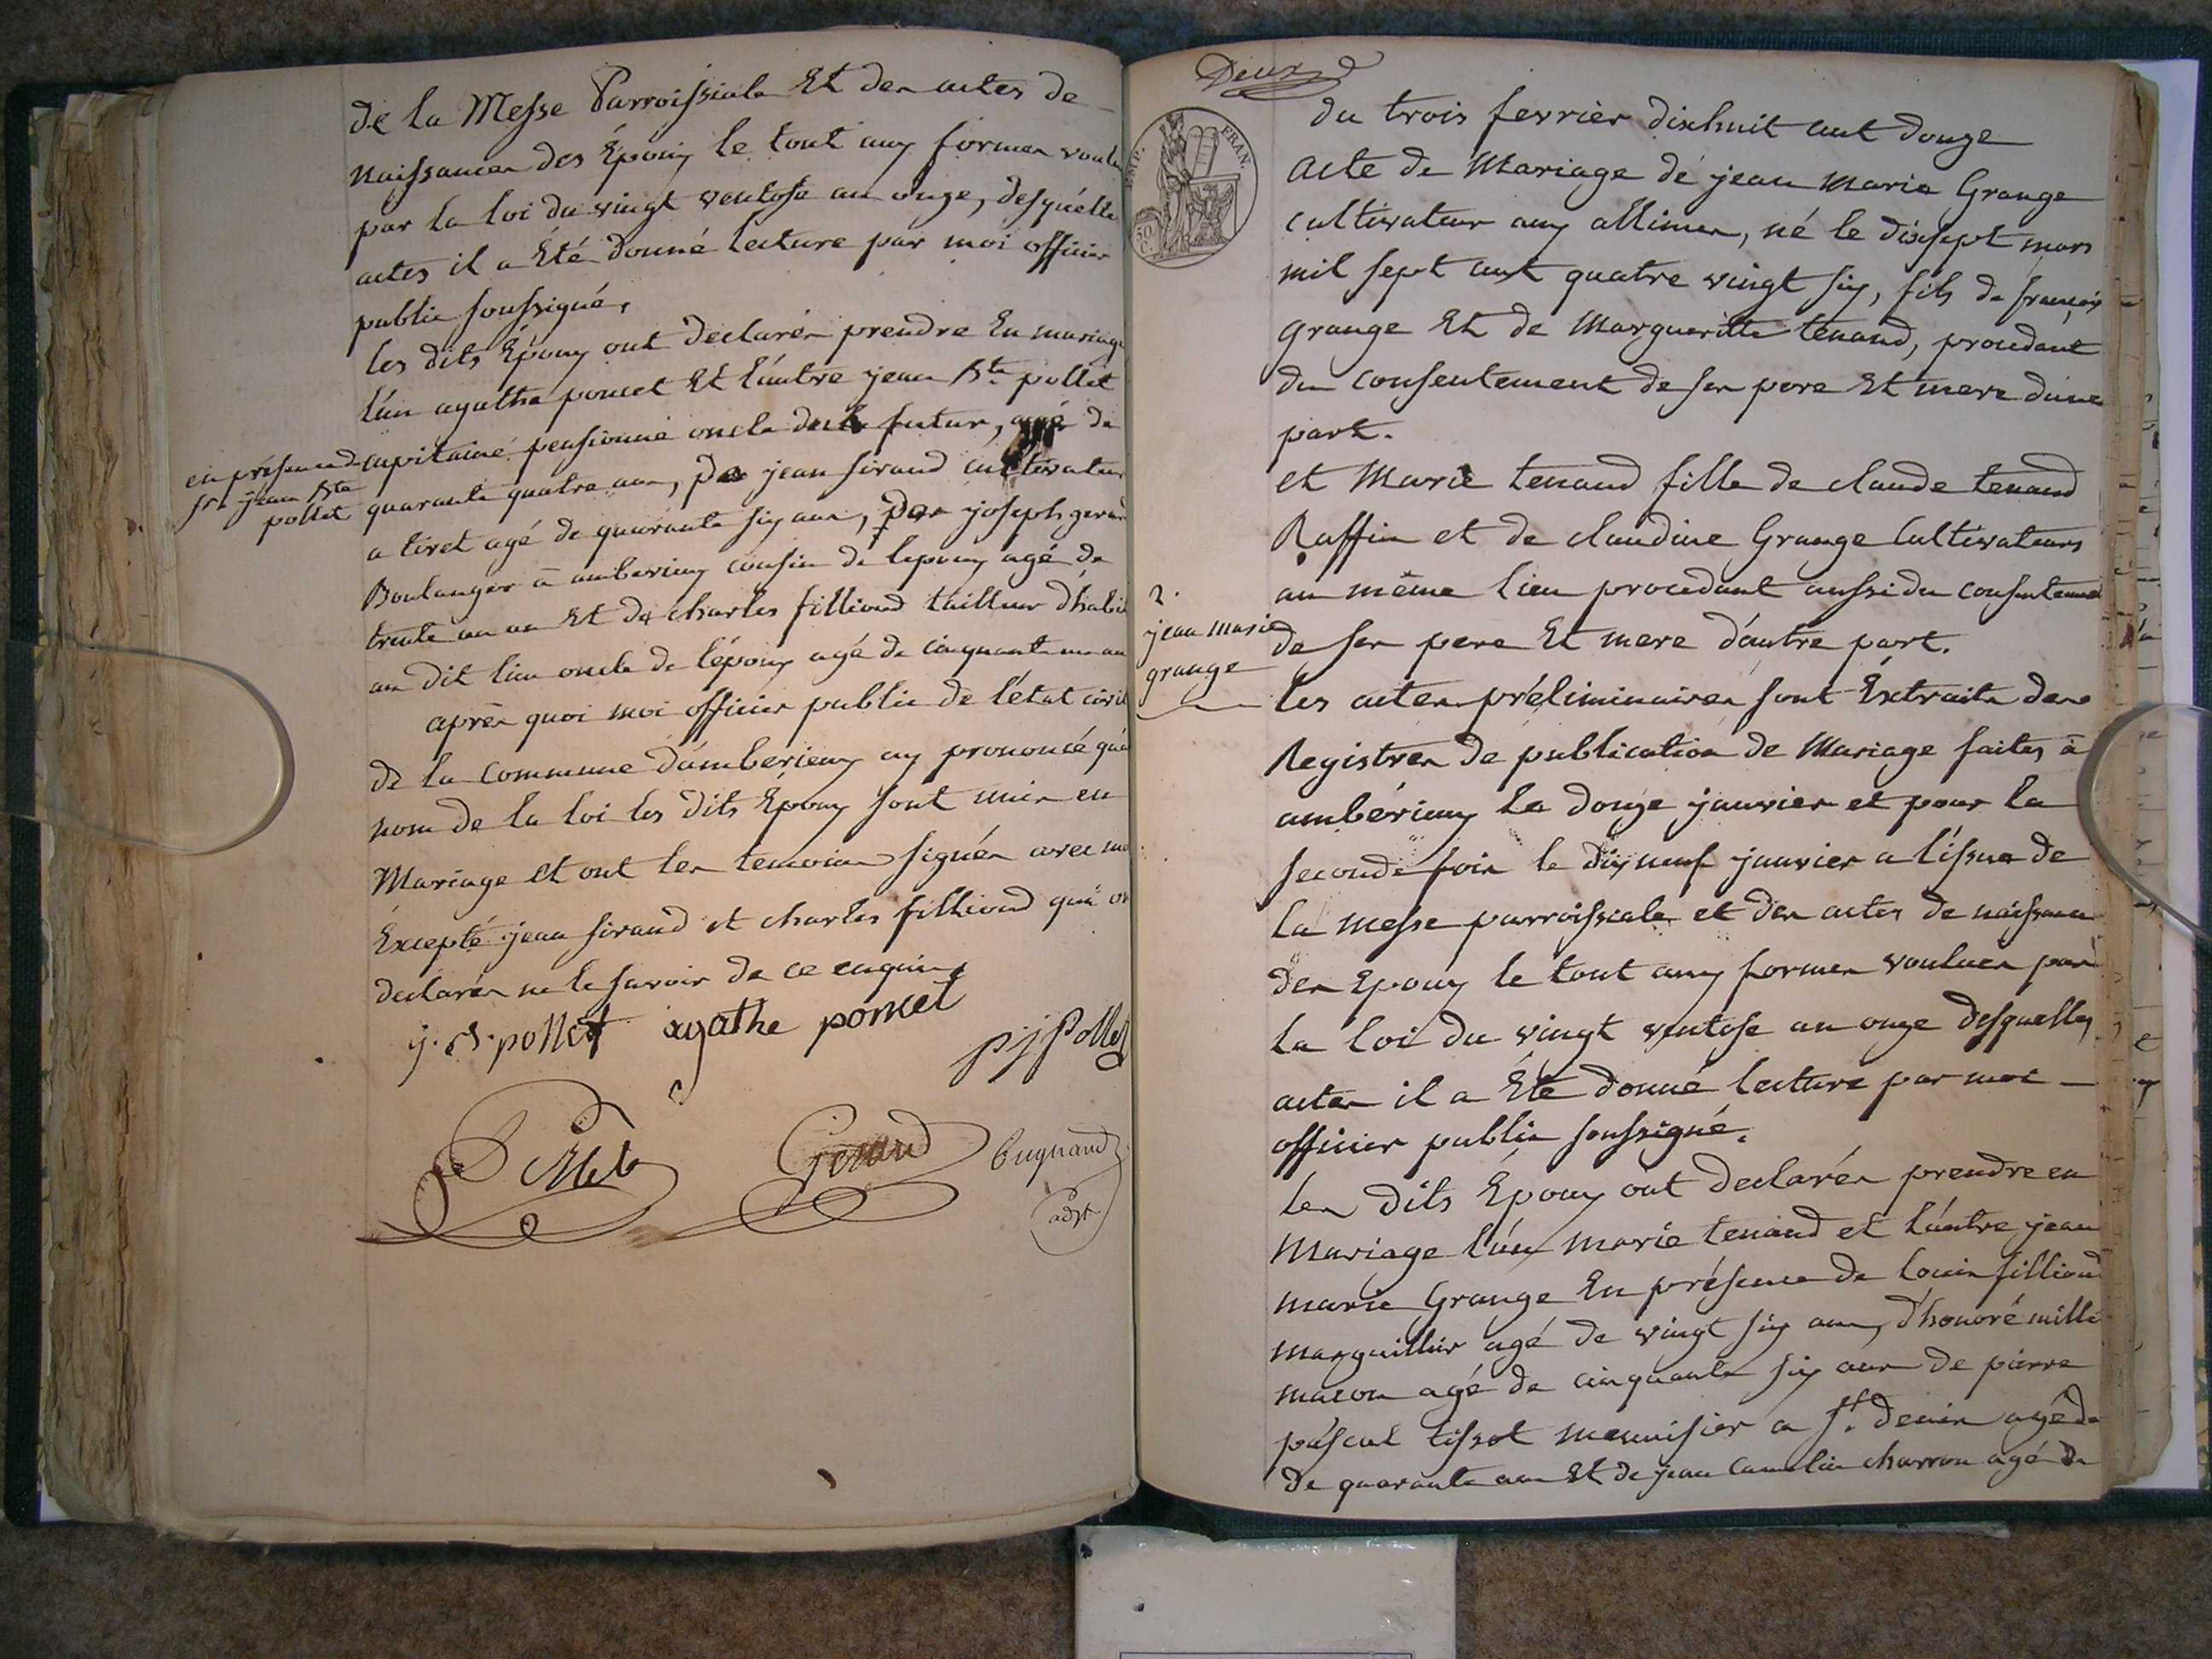 de la Messe Parroissiale Et des actes de
naissances des Epoux le tout aux formes voulu
par la loi du vingt ventose an onze, desquelle
actes il a Été donné lecture par moi officier
public soussigné,
les dits Epoux ont déclarés prendre En mariage
l'un agathe poncet Et l'autre jean Bte pollet
en présence de
sr jean Bte
pollet
capitaine pensionné oncle du futur, agé de
quarante quatre ans, de jean sirand cultivateur
a tiret agé de quarante six ans, de joseph gerard
Boulanger à amberieux cousin de lepoux agé de
trente un an Et de charles filliond tailleur d'habit
au dit lieu oncle de l'époux agé de cinquante un an
après quoi moi officier public de l'état civil
de la commune d'amberieux ay prononcé qu'au
nom de la loi les dits Epoux sont unis en
Mariage et ont les temoins signés avec moi
Excepté jean sirand et charles filliond qui on
declarés ne le savoir de ce enquis
j. B. pollet agathe poncet
p j Pollet
Gerard Cugnand
adjt
Deux
EMP. FRAN.
50 C.
du trois fevrier dixhuit cent douze
acte de Mariage de jean marie Grange
cultivateur aux allimes, né le dixsept mars
mil sept cent quatre vingt six, fils de françois
grange Et de Margueritte tenand, procedant
du consentement de ses pere Et mere d'une
part.
et Marie tenand fille de claude tenand
Ruffin et de claudine Grange Cultivateurs
au même lieu procedant aussi du consentement
2.
jean marie
grange
de ses pere Et mere d'autre part.
les actes préliminaires sont Extraits des
Registres de publication de Mariage faites à
ambérieux le douze janvier et pour la
seconde fois le dix neuf janvier a l'issue de
la messe parroissiale et des actes de naissance
des Epoux le tout aux formes voulues par
la loi du vingt ventose an onze desquelles
actes il a Été donné lecture par moi
officier public soussigné.
les dits Époux ont declarés prendre en
Mariage l'un marie tenand et l'autre jean
marie Grange En présence de louis filliond
marguillier agé de vingt six ans, d'honoré millé
macon agé de cinquante six ans de pierre
pascal tissot menuisier a St. denis agé de
de quarante ans Et de jean camelin charron agé de